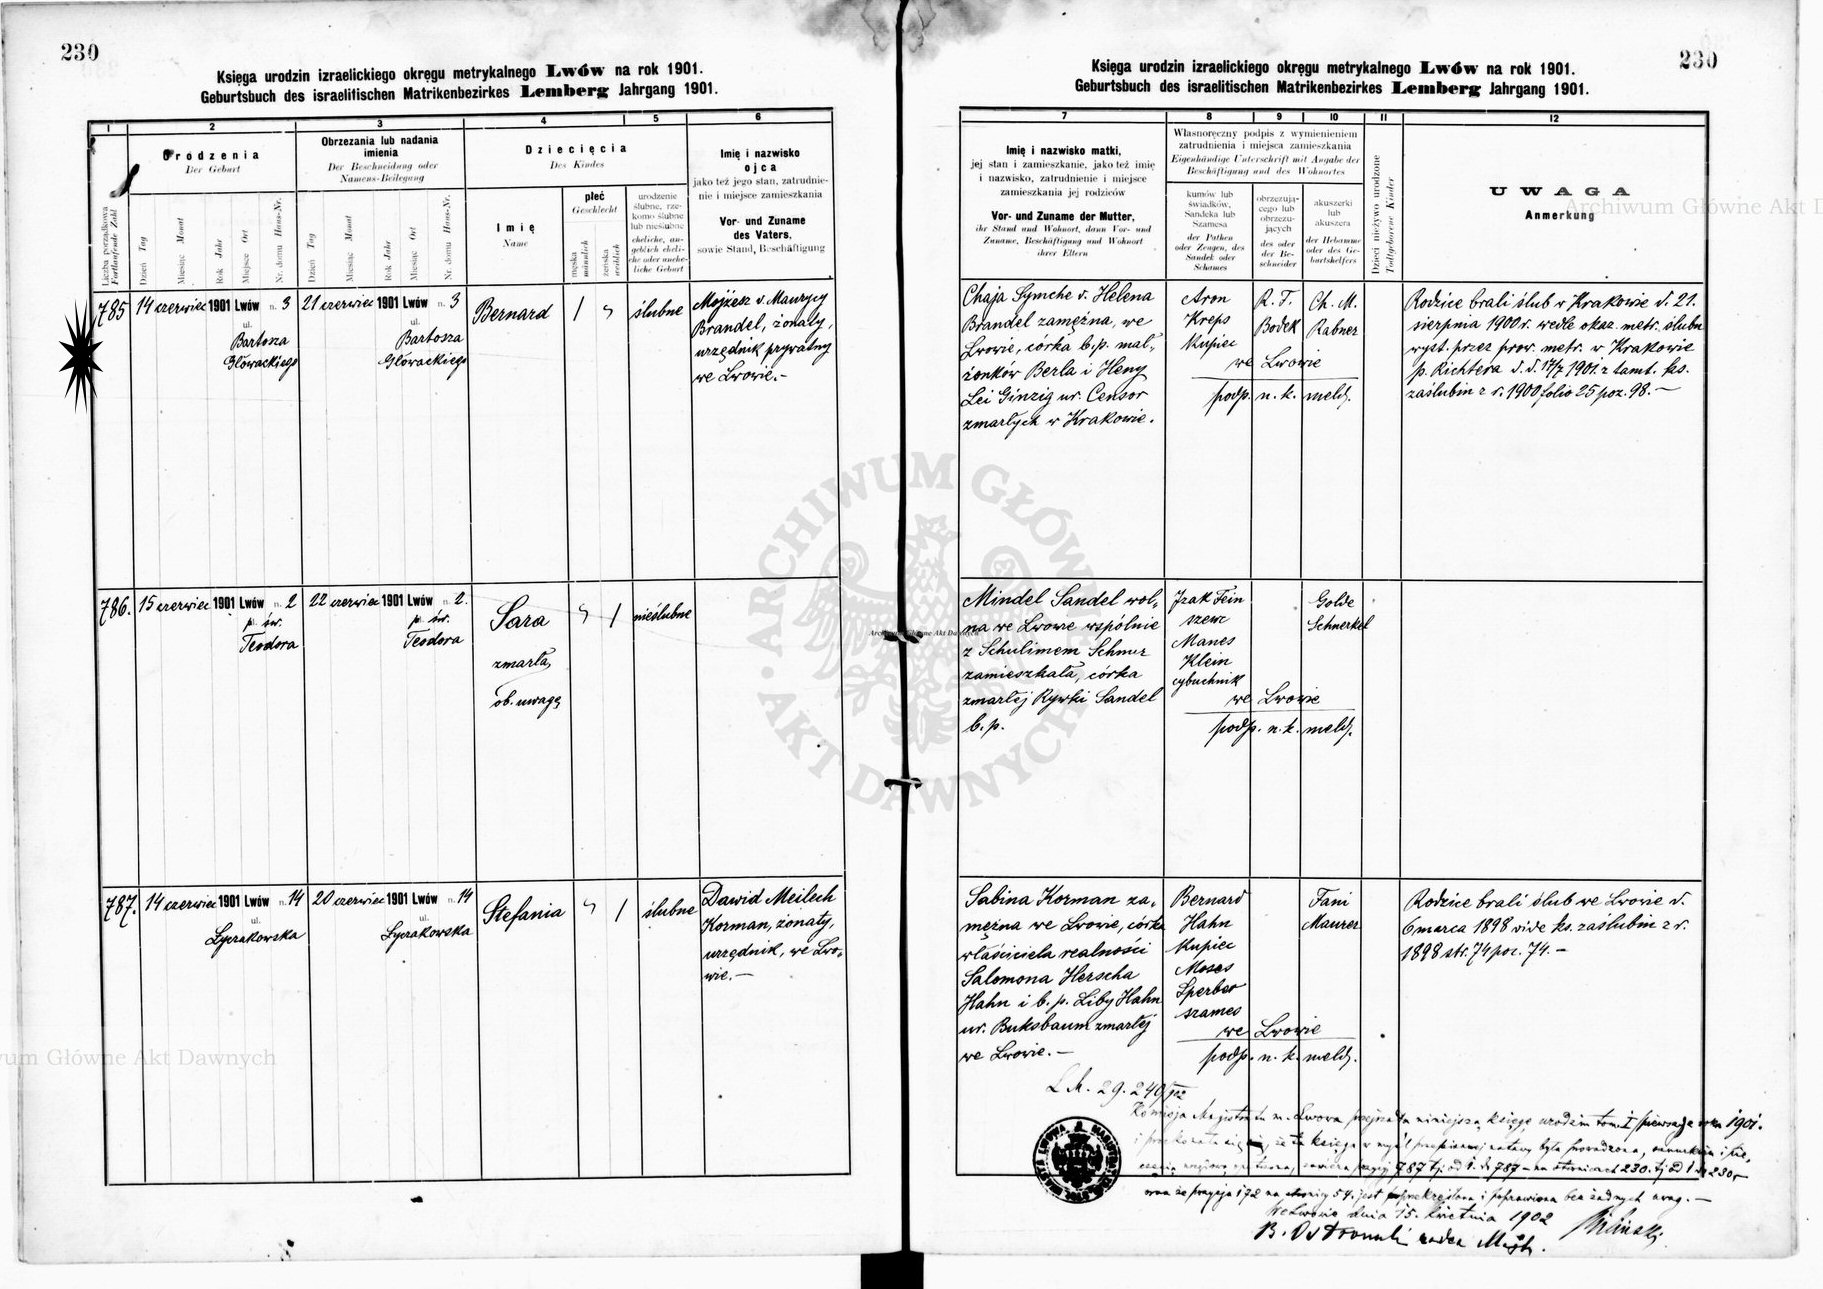 230
Księga urodzin izraelickiego okręgu metrykalnego Lwów na rok 1901.
Geburtsbuch des israelitischen Matrikenbezirkes Lemberg Jahrgang 1901.
1 2 3 4 5 6
Liczba porządkowa
Fortlaufende Zahl
Urodzenia
Der Geburt
Dzień Tag
Miesiąc Monat
Rok Jahr
Miejsce Ort
Nr. domu Haus-Nr.
Obrzezania lub nadania
imienia
Der Beschneidung oder
Namens-Beilegung
Dzień Tag
Miesiąc Monat
Rok Jahr
Miejsce Ort
Nr. domu Haus-Nr.
Dziecięcia
Des Kindes
Imię
Name
płeć
Geschlecht
męska
männlich
żeńska
weiblich
urodzenie
ślubne, rze-
komo ślubne
lub nieślubne
eheliche, an-
geblich eheli-
che oder unehe-
liche Geburt
Imię i nazwisko
ojca
jako też jego stan, zatrudnie-
nie i miejsce zamieszkania
Vor- und Zuname
des Vaters,
sowie Stand, Beschäftigung
785 14 czerwiec 1901 Lwów n. 3 21 czerwiec 1901 Lwów n. 3 Bernard 1 ślubne
ul. Bartosza
Głowackiego
ul. Bartosza
Głowackiego
Mojżesz v. Maurycy
Brandel, żonaty,
urzędnik prywatny
we Lwowie.-
786. 15 czerwiec 1901 Lwów n. 2 22 czerwiec 1901 Lwów n. 2. Sara 1 nieślubne
pl. św.
Teodora
pl. św.
Teodora
zmarła,
ob. uwagę
787. 14 czerwiec 1901 Lwów n. 14 20 czerwiec 1901 Lwów n. 14 Stefania 1 ślubne
ul.
Łyczakowska
ul.
Łyczakowska
Dawid Meilech
Korman, żonaty,
urzędnik, we Lwo-
wie.-
230
Księga urodzin izraelickiego okręgu metrykalnego Lwów na rok 1901.
Geburtsbuch des israelitischen Matrikenbezirkes Lemberg Jahrgang 1901.
7 8 9 10 11 12
Imię i nazwisko matki,
jej stan i zamieszkanie, jako też imię
i nazwisko, zatrudnienie i miejsce
zamieszkania jej rodziców
Vor- und Zuname der Mutter,
ihr Stand und Wohnort, dann Vor- und
Zuname, Beschäftigung und Wohnort
ihrer Eltern
Własnoręczny podpis z wymienieniem
zatrudnienia i miejsca zamieszkania
Eigenhändige Unterschrift mit Angabe der
Beschäftigung und des Wohnortes
kumów lub
świadków,
Sandeka lub
Szamesa
der Pathen
oder Zeugen, des
Sandek oder
Schames
obrzezują-
cego lub
obrzezu-
jących
des oder
der Be-
schneider
akuszerki
lub
akuszera
der Hebamme
oder des Ge-
burtshelfers
Dzieci nieżywo urodzone
Todtgeborene Kinder
UWAGA
Anmerkung
Chaja Symche v. Helena
Brandel zamężna, we
Lwowie, córka b.p. mał-
żonków Berla i Heny
Lei Ginzig ur. Censor
zmarłych w Krakowie.
Aron
Kreps
kupiec
R. T.
Bodek
Ch. M.
Rabner
we Lwowie
podp. n. k. meld.
Rodzice brali ślub w Krakowie d. 21.
sierpnia 1900 r. wedle okaz. metr. ślubu
wyst. przez prow. metr. w Krakowie
p. Richtera d. d. 17/7 1901 z tamt. ks.
zaślubin z r. 1900 folio 25 poz. 98.-
Mindel Sandel wol-
na we Lwowie wspólnie
z Schulimem Schmer
zamieszkała, córka
zmarłej Rywki Sandel
b. p.
Izak Fein
szewc
Manes
Klein
cybuchnik
Golde
Schnerkel
we Lwowie
podp. n. k. meld.
Sabina Korman za-
mężna we Lwowie, córka
właściciela realności
Salomona Herscha
Hahn i b. p. Liby Hahn
ur. Buksbaum zmarłej
we Lwowie.-
Bernard
Hahn
kupiec
Moses
Sperber
szames
Fani
Maurer
we Lwowie
podp. n. k. meld.
Rodzice brali ślub we Lwowie d.
6 marca 1898 vide ks. zaślubin z r.
1898 str. 74 poz. 74.-
L. M. 29.240/902
Komisja Magistratu m. Lwowa przejrzała niniejszą księgę urodzin tom I /pierwszy/ z roku 1901.
i przekonała się, że ta księga w myśl przepisanej ustawy była prowadzona,
zawiera pozycji 787 tj. od 1. do 787 - na stronicach 230. tj. od 1 do 230
oraz że pozycja 172 na stronicy 54. jest przekreślona i poprawiona bez żadnych uwag.-
We Lwowie dnia 15. kwietnia 1902
B. Ostrowski radca Mag.
ARCHIWUM GŁÓWNE AKT DAWNYCH
Archiwum Główne Akt D
Archiwum Główne Akt Dawnych
wum Główne Akt Dawnych